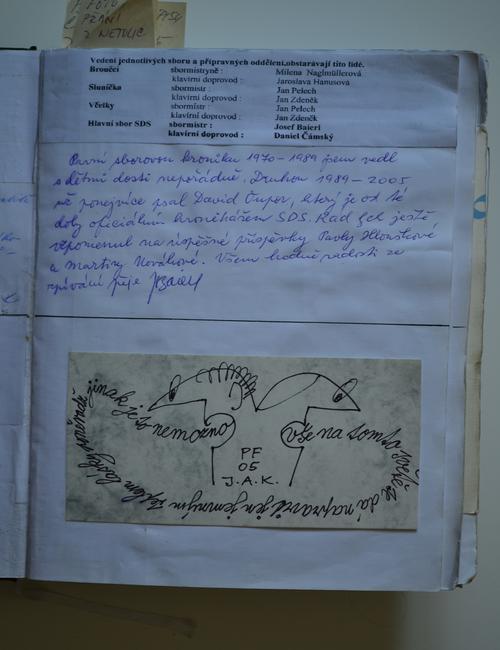 FOTO
PŘÁNÍ
Z NETOLIC
Vedení jednotlivých sboru a přípravných oddělení,obstarávají tito lidé.
Broučci sbormistryně : Milena Naglmüllerová
klavírní doprovod : Jaroslava Hanusová
Sluníčka sbormistr : Jan Pelech
klavírní doprovod : Jan Zdeněk
Včelky sbormistr : Jan Pelech
klavírní doprovod : Jan Zdeněk
Hlavní sbor SDS sbormistr : Josef Baierl
klavírní doprovod : Daniel Čámský
První sborovou kroniku 1970-1989 jsem vedl
s dětmi dosti nepořádně. Druhou 1989-2005
už ponejvíce psal David Čupov, který je od té
doby oficiálním kronikářem SDS. Rád bych ještě
vzpomenul na úspěšné příspěvky Pavly Houškové
a Martiny Novákové. Všem hodně radosti ze
zpívání přeje
jinak je to nemožno
vše na tom
se dá napravit jen jemným
PF
05
J.A.K.